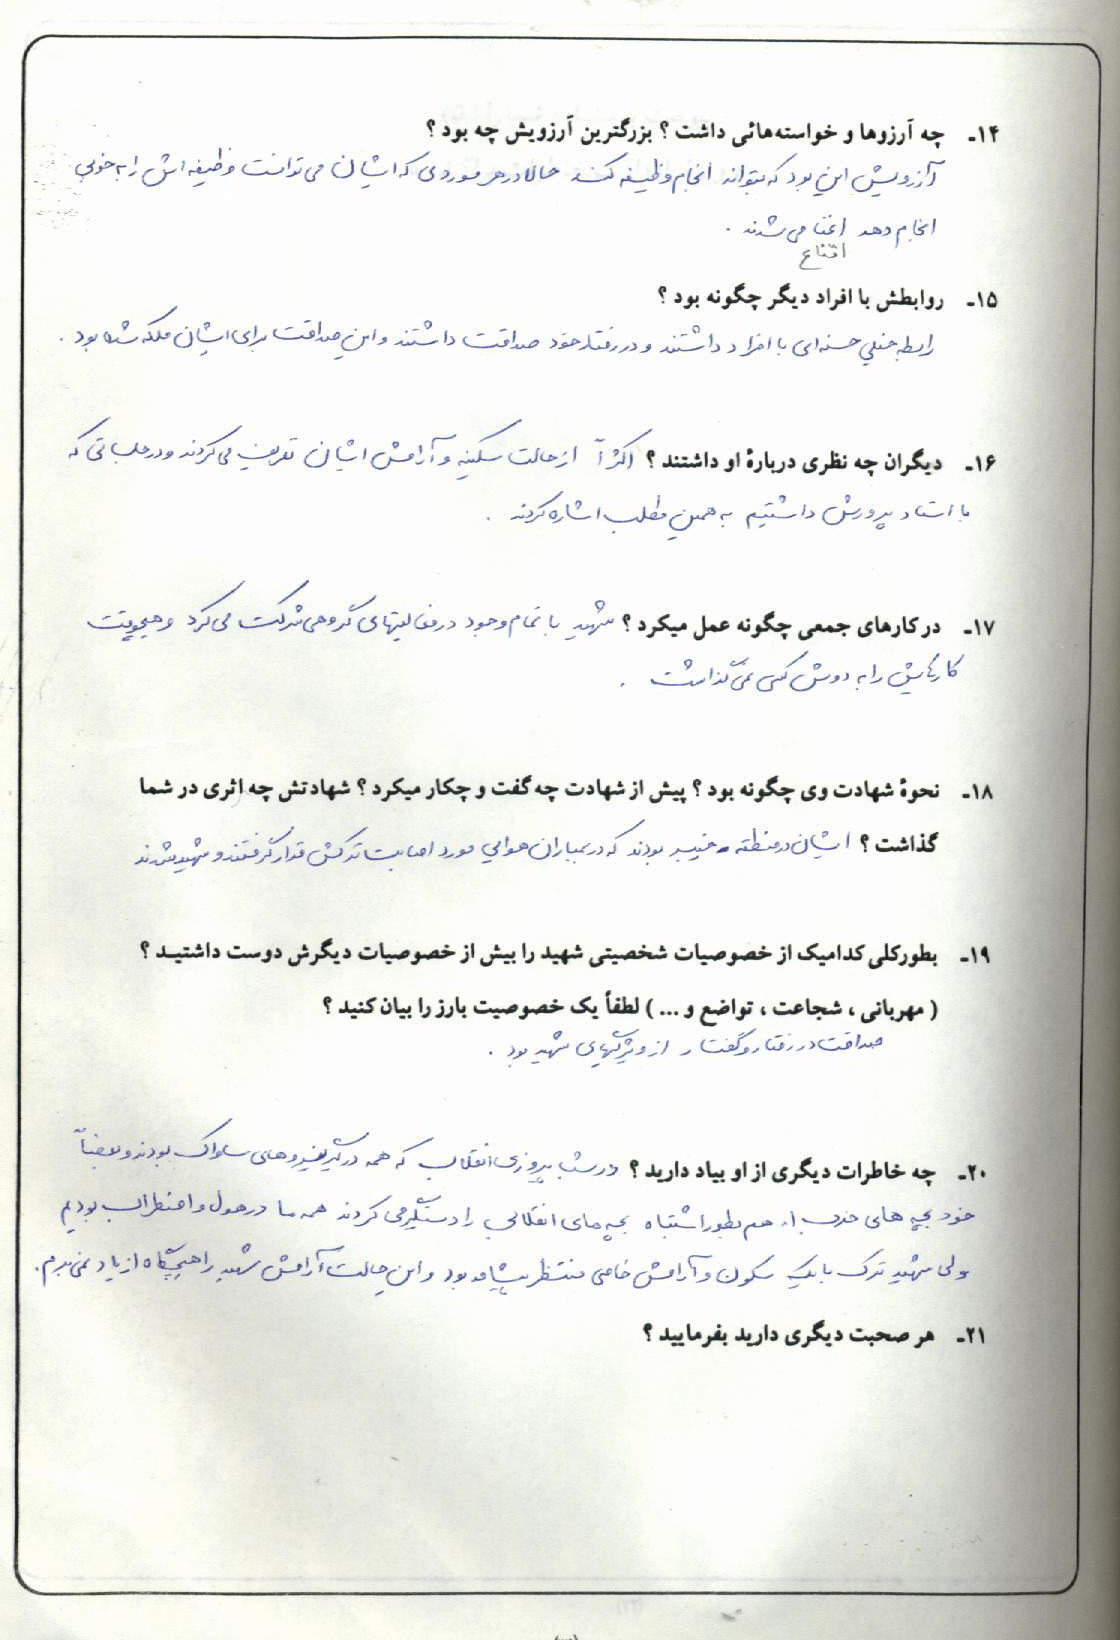 ۱۴- چه آرزوها و خواسته‌هائی داشت ؟ بزرگترین آرزویش چه بود ؟
آرزویش این بود که بتواند انجام وظیفه کند حالا در هر موردی که ایشان می توانست وظیفه اش را به خوبی
انجام دهد اغنا می شدند .
اقناع
۱۵- روابطش با افراد دیگر چگونه بود ؟
رابطه خیلی حسنه ای با افراد داشتند و در رفتار خود صداقت داشتند و این صداقت برای ایشان ملکه شده بود .
۱۶- دیگران چه نظری دربارهٔ او داشتند ؟ اکثراً از حالت سکینه و آرامش ایشان تعریف می کردند و در جلساتی که
با استاد پرورش داشتیم به همین مطلب اشاره کردند .
۱۷- در کارهای جمعی چگونه عمل میکرد ؟ شهید با تمام وجود در فعالیتهای گروهی شرکت می کرد و هیچوقت
کارهایش را به دوش کسی نمی گذاشت .
۱۸- نحوهٔ شهادت وی چگونه بود ؟ پیش از شهادت چه گفت و چکار میکرد ؟ شهادتش چه اثری در شما
گذاشت ؟ ایشان در منطقه خیبر بودند که در بمباران هوایی مورد اصابت ترکش قرار گرفتند و شهید شدند
۱۹- بطورکلی کدامیک از خصوصیات شخصیتی شهید را بیش از خصوصیات دیگرش دوست داشتید ؟
( مهربانی ، شجاعت ، تواضع و ... ) لطفاً یک خصوصیت بارز را بیان کنید ؟
صداقت در رفتار و گفتار از ویژگیهای شهید بود .
۲۰- چه خاطرات دیگری از او بیاد دارید ؟ در شب پیروزی انقلاب که همه درگیر نیروهای ساواک بودند و بعضاً
خود بچه های حزب ا... هم بطور اشتباه بچه های انقلابی را دستگیر می کردند همه ما در هول و اضطراب بودیم
ولی شهید ترک با یک سکون و آرامش خاصی منتظر پیشامد بود و این حالت آرامش شهید را هیچگاه از یاد نمی برم .
۲۱- هر صحبت دیگری دارید بفرمایید ؟